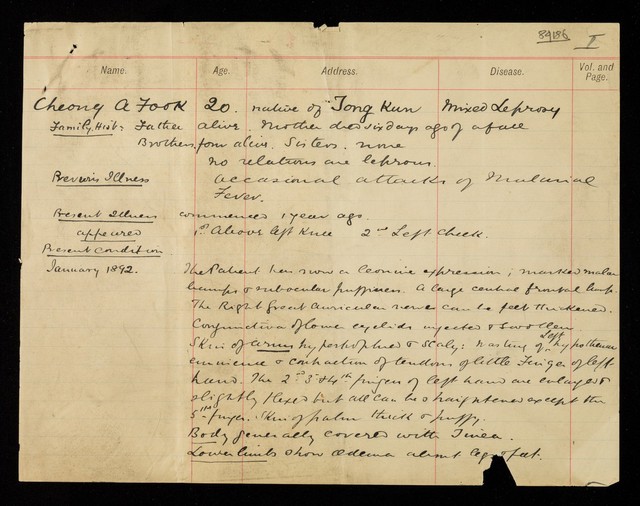 84186 I
Name. Age. Address. Disease. Vol. and Page.
Cheong A Fook 20. native of Tong Kun Mixed Leprosy
Family Hist: Father alive. Mother died six days ago of a fall
Brothers, four alive. Sisters. none
No relations are leprous.
Previous Illness occasional attacks of Malarial
Fever.
Present Illness commenced 1 year ago.
appeared 1st Above left Knee 2nd Left Cheek.
Present Condition
January 1892. The Patient has now a leonine expression; marked malar
bumps & subocular puffiness. A large central frontal bump.
The Right Great Auricular nerve can be felt thickened.
Conjunctiva of lower eyelids injected & swollen
Skin of arms hypertrophied & scaly: wasting of Left hypothenar
eminence & contraction of tendons of little Finger of left
hand. The 2nd 3rd & 4th fingers of left hand are enlarged &
slightly flexed but all can be straightened except the
5th finger. Skin of palm thick & puffy.
Body generally covered with Tinea.
Lower limbs show Oedema about legs & feet.